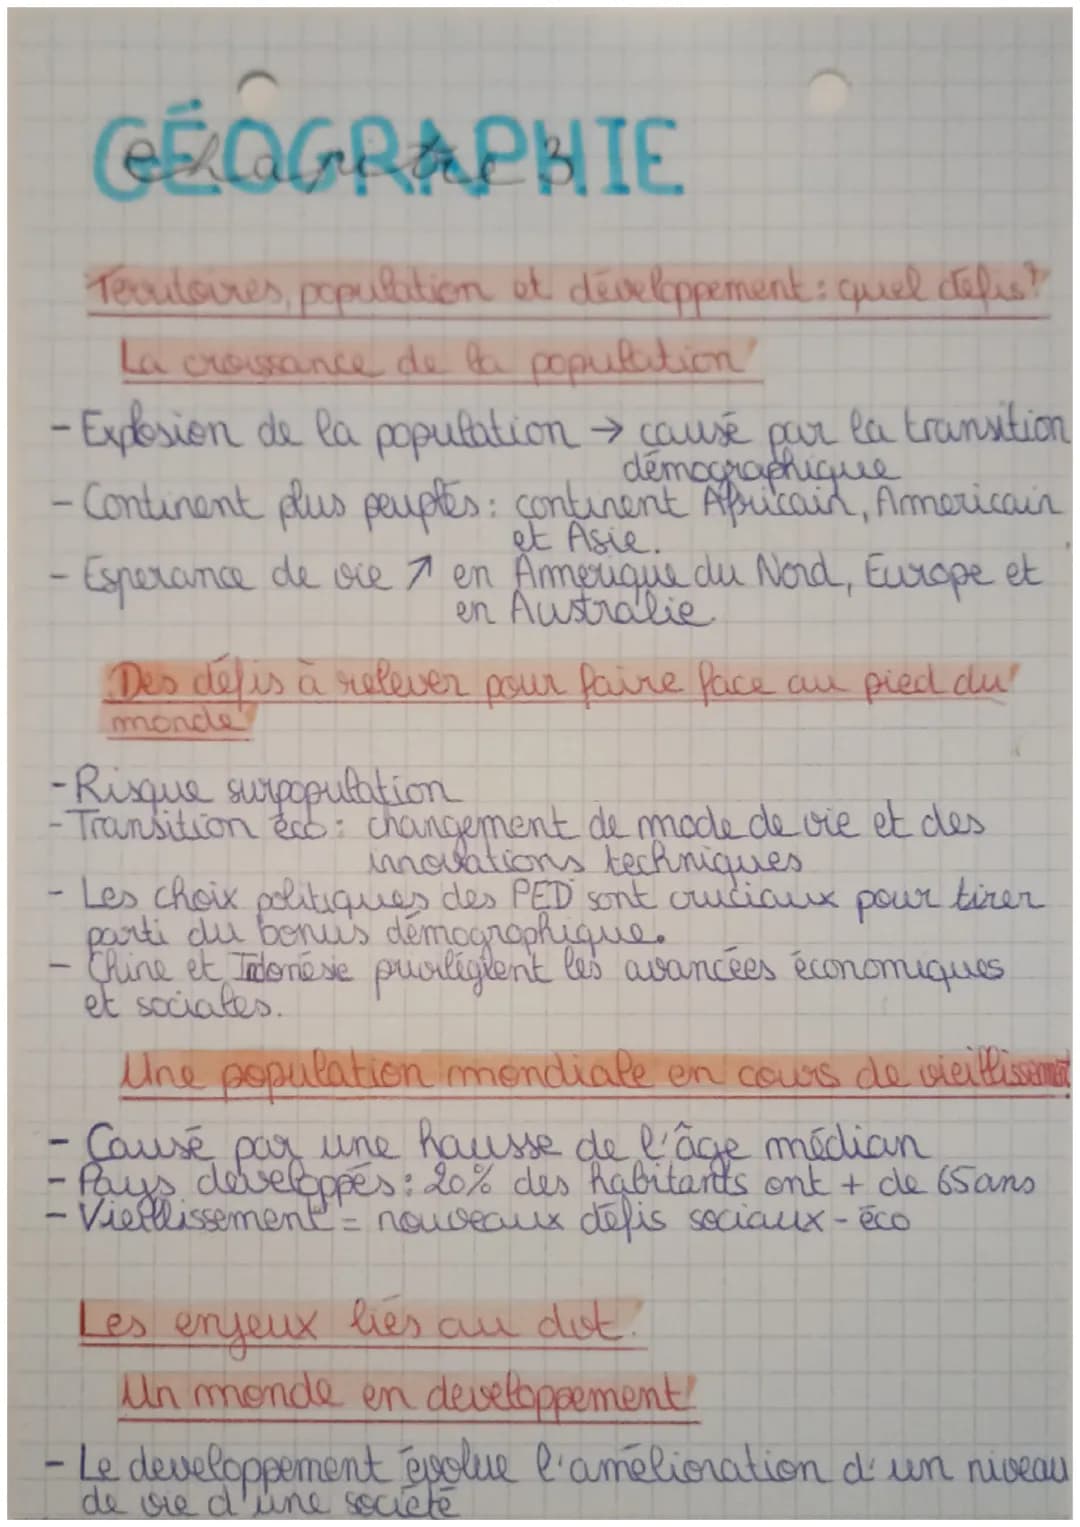 GÉOGRAPHIE
chapitre 3
Territoires, population et développement : quel défis ?
La croissance de la population
- Explosion de la population → causé par la transition
démographique
- Continent plus peuplés : continent Africain, Armericain
et Asie.
- Esperance de vie ↗ en Armerique du Nord, Europe et
en Australie
Des défis à relever pour faire face au pied du
monde
- Risque surpopulation
- Transition éco : changement de mode de vie et des
innovations techniques
- Les choix politiques des PED sont cruciaux pour tirer
parti du bonus démographique.
- Chine et Indonésie privilégient les avancées économiques
et sociales.
Une population mondiale en cours de vieillissement
- Causé par une hausse de l'âge médian
- Pays developpés : 20% des habitants ont + de 65ans
- Vieillissement = nouveaux défis sociaux-éco
Les enjeux liés au dvt.
Un monde en developpement
- Le developpement évolue l'amélioration d'un niveau
de vie d'une société